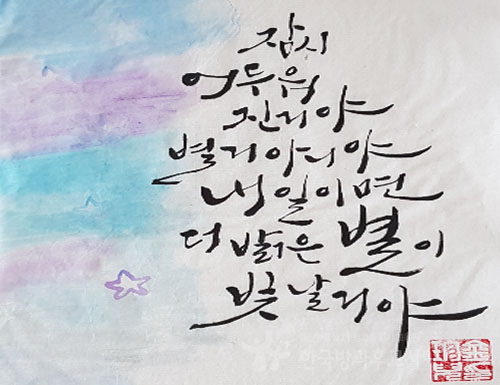 잠시
어두워
진거야
별거아니야
내일이면
더 밝은 별이
빛날거야